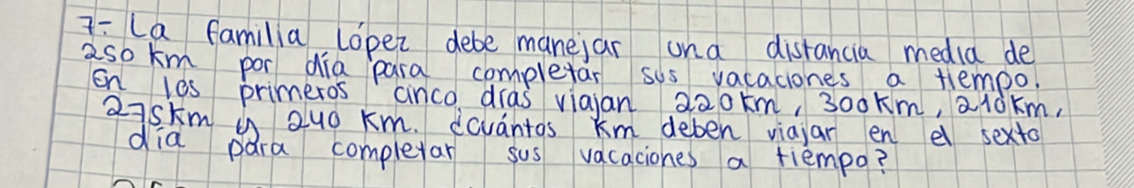 7- La familia López debe manejar una distancia media de
250 km por día para completar sus vacaciones a tiempo.
En los primeros cinco días viajan 220km, 300Km, 210km,
275km y 240 Km. ¿Cuántos Km deben viajar en el sexto
día para completar sus vacaciones a tiempo?